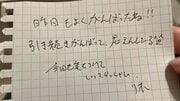 昨日もよくがんばったね!!
引き続きがんばって、応えんしてるぞ
今日も気をつけて
いってらっしゃい